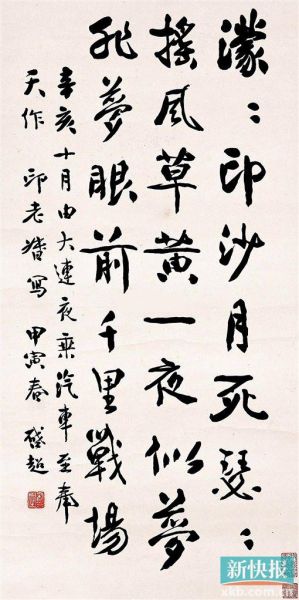 濛〻印沙月死瑟〻
搖风草黄一夜似夢
非夢眼前千里戰場
辛亥十月由大連夜乘汽車至奉
天作 印老督寫 甲寅春 啓超
新快报
xkb.com.cn